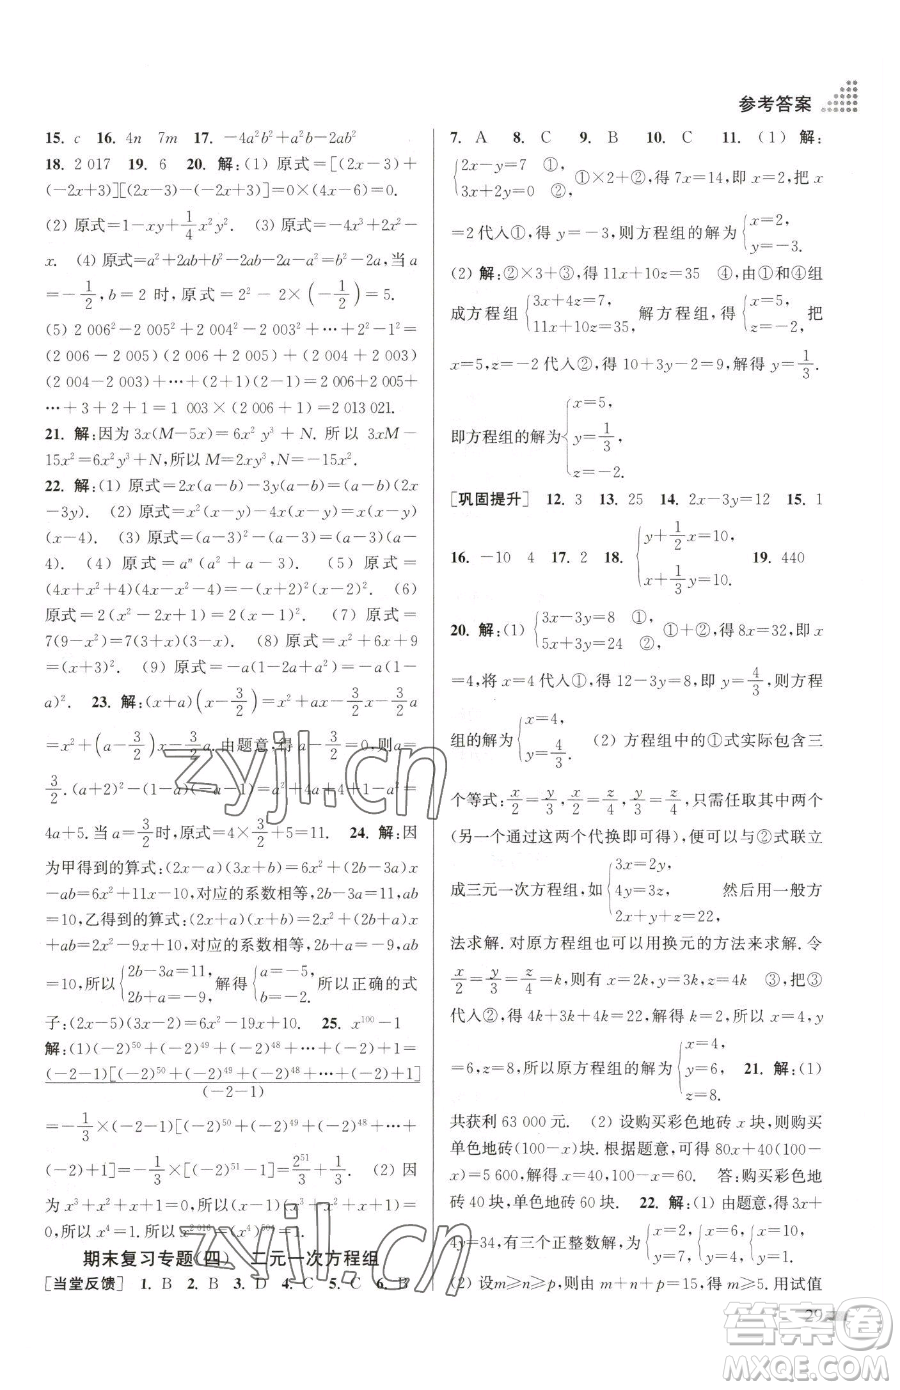 参考答案
15. c 16. 4n 7m 17. −4a²b²+a²b−2ab²
18. 2 017 19. 6 20. 解:(1) 原式=[(2x−3)+
(−2x+3)][(2x−3)−(−2x+3)]=0×(4x−6)=0.
(2) 原式=1−xy+1/4x²y². (3) 原式=−4x³+2x²−
x. (4) 原式=a²+2ab+b²−2ab−2a=a²+b²−2a,当 a
=−1/2,b=2 时,原式=2²−2×(−1/2)=5.
(5) 2 006²−2 005²+2 004²−2 003²+⋯+2²−1²=
(2 006−2 005)(2 006+2 005)+(2 004+2 003)
(2 004−2 003)+⋯+(2−1)(2+1)=2 006+2 005+
⋯+3+2+1=1 003×(2 006+1)=2 013 021.
21. 解:因为 3x(M−5x)=6x²y³+N. 所以 3xM−
15x²=6x²y³+N,所以 M=2xy³,N=−15x².
22. 解:(1) 原式=2x(a−b)−3y(a−b)=(a−b)(2x
−3y). (2) 原式=x²(x−y)−4(x−y)=(x−y)
(x+2)(x−2). (3) 原式=(a−3)²−(a−3)=(a−3)(a−
4). (4) 原式=aⁿ(a²+a−3). (5) 原式=
(4x+x²+4)(4x−x²−4)=−(x+2)²(x−2)². (6)
原式=2(x²−2x+1)=2(x−1)². (7) 原式=
7(9−x²)=7(3+x)(3−x). (8) 原式=x²+6x+9
=(x+3)². (9) 原式=−a(1−2a+a²)=−a(1−
a)². 23. 解:(x+a)(x−3/2)=x²+ax−3/2x−3/2a
=x²+(a−3/2)x−3/2a. 由题意,得 a−3/2=0,则 a=
3/2. (a+2)²−(1−a)(−a−1)=a²+4a+4+1−a²=
4a+5. 当 a=3/2时,原式=4×3/2+5=11. 24. 解:因
为甲得到的算式:(2x−a)(3x+b)=6x²+(2b−3a)x
−ab=6x²+11x−10,对应的系数相等,2b−3a=11,ab
=10,乙得到的算式:(2x+a)(x+b)=2x²+(2b+a)x
+ab=2x²−9x+10,对应的系数相等,2b+a=−9,ab
=10,所以{2b−3a=11, 2b+a=−9, 解得{a=−5, b=−2. 所以正确的式
子:(2x−5)(3x−2)=6x²−19x+10. 25. x¹⁰⁰−1
解:(1)(−2)⁵⁰+(−2)⁴⁹+(−2)⁴⁸+⋯+(−2)+1=
(−2−1)[(−2)⁵⁰+(−2)⁴⁹+(−2)⁴⁸+⋯+(−2)+1]/(−2−1)
=−1/3×(−2−1)[(−2)⁵⁰+(−2)⁴⁹+(−2)⁴⁸+⋯+
(−2)+1]=−1/3×[(−2)⁵¹−1]=2⁵¹/3+1/3. (2) 因为
x³+x²+x+1=0,所以(x−1)(x³+x²+x+1)=0,所
以 x⁴=1. 所以 x²⁰¹⁶=(x⁴)⁵⁰⁴=1.
期末复习专题(四) 二元一次方程组
[当堂反馈] 1. B 2. B 3. D 4. C 5. C 6. B
7. A 8. C 9. B 10. C 11. (1) 解:
{2x−y=7 ①, 3x+2y=0 ②, ①×2+②,得 7x=14,即 x=2,把 x
=2 代入①,得 y=−3,则方程组的解为{x=2, y=−3.
(2) 解:②×3+③,得 11x+10z=35 ④,由①和④组
成方程组{3x+4z=7, 11x+10z=35, 解方程组得{x=5, z=−2, 把
x=5,z=−2 代入②,得 10+3y−2=9,解得 y=1/3.
即方程组的解为{x=5, y=1/3, z=−2.
[巩固提升] 12. 3 13. 25 14. 2x−3y=12 15. 1
16. −10 4 17. 2 18. {y+1/2x=10, x+1/3y=10. 19. 440
20. 解:(1) {3x−3y=8 ①, 5x+3y=24 ②, ①+②,得 8x=32,即 x
=4,将 x=4 代入①,得 12−3y=8,即 y=4/3,则方程
组的解为{x=4, y=4/3. (2) 方程组中的①式实际包含三
个等式:x/2=y/3,x/2=z/4,y/3=z/4,只需任取其中两个
(另一个通过这两个代换即可得),可以与②式联立
成三元一次方程组,如{3x=2y, 4y=3z, 2x+y+z=22, 然后用一般方
法求解. 对原方程组也可以用换元的方法来求解. 令
x/2=y/3=z/4=k,则有 x=2k,y=3k,z=4k ③,把③
代入②,得 4k+3k+4k=22,解得 k=2,所以 x=4,y
=6,z=8,所以原方程组的解为{x=4, y=6, z=8. 21. 解:(1)
共获利 63 000 元. (2) 设购买彩色地砖 x 块,则购买
单色地砖(100−x)块. 根据题意,可得 80x+40(100−
x)=5 600,解得 x=40,100−x=60. 答:购买彩色地
砖 40 块,单色地砖 60 块. 22. 解:(1) 由题意,得 3x+
2y=18,所以{x=0, y=9, {x=2, y=6, {x=4, y=3, {x=6, y=0.
(2) 设 m≥n≥p,而 m+n+p=15,得 m≥5. 用试值
29
zyjl.cn
zyjl.cn
答案圈
MXQE.COM